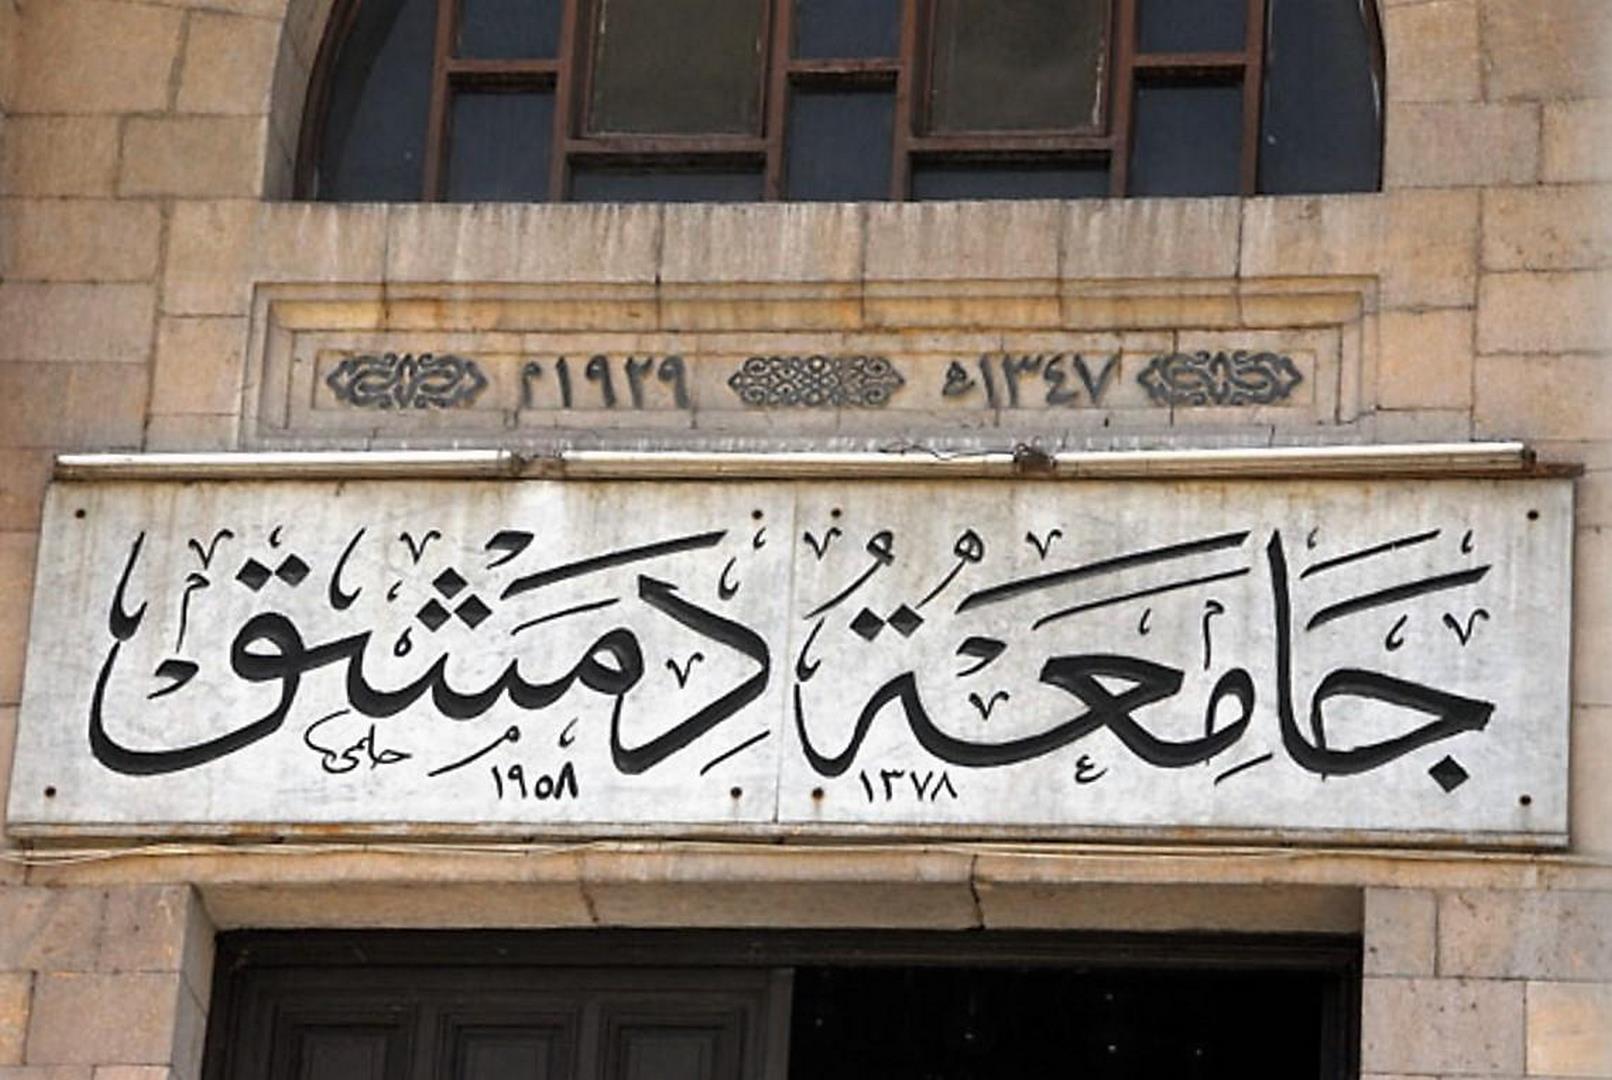 ١٣٤٧هـ ١٩٢٩م
جَامِعَةُ دِمَشق
١٣٧٨ هـ ١٩٥٨ م
حلمي